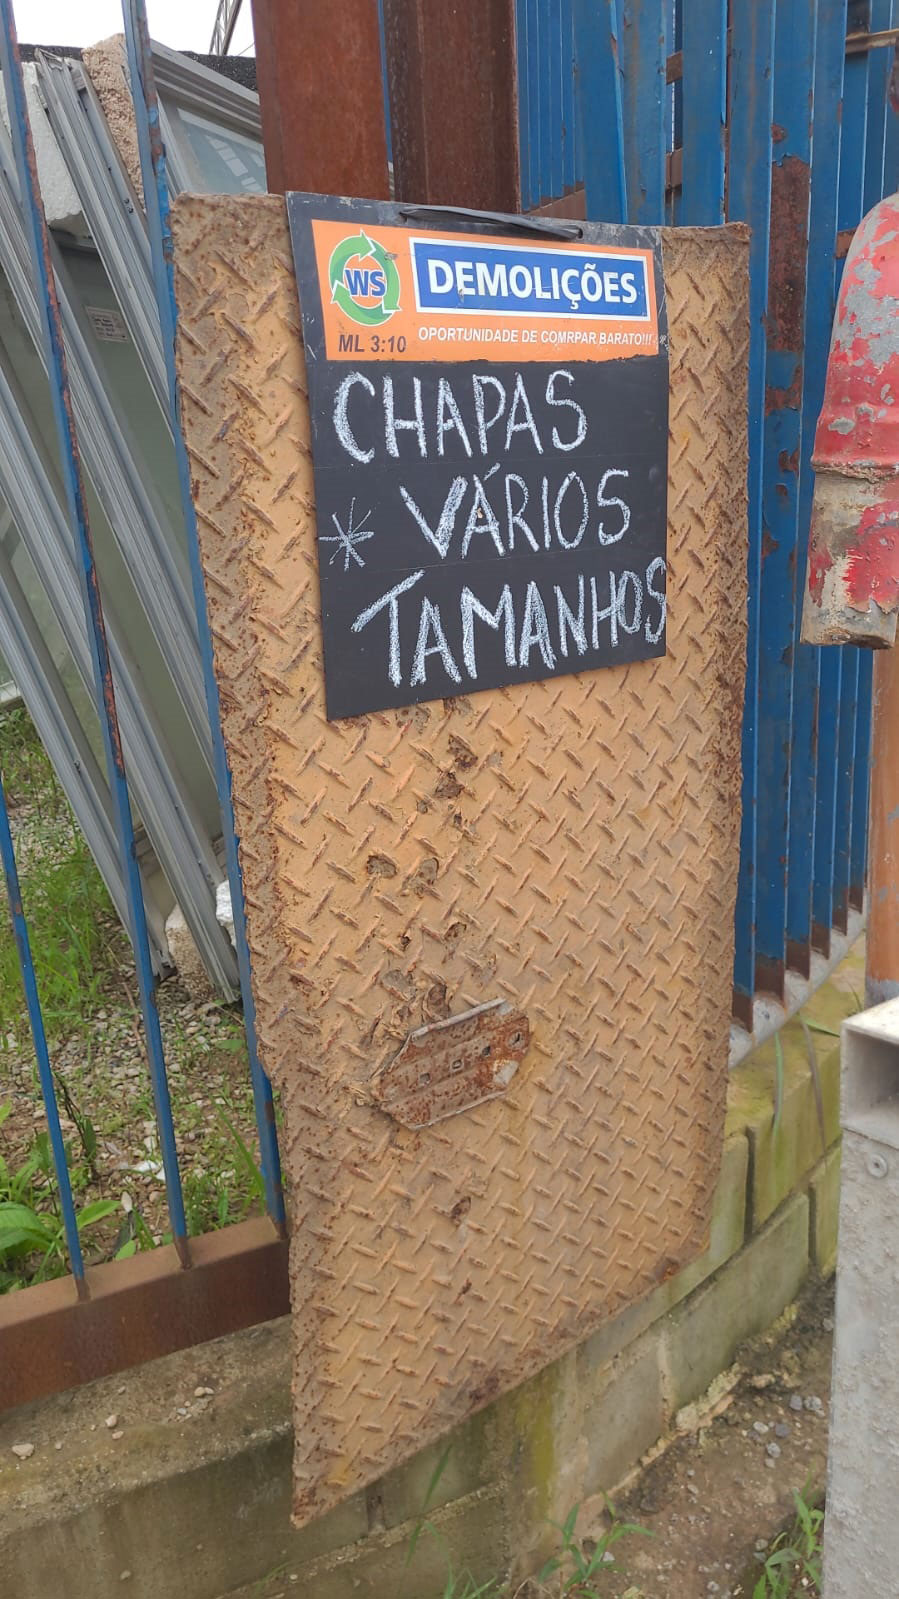 WS
DEMOLIÇÕES
ML 3:10
OPORTUNIDADE DE COMRPAR BARATO!!!
CHAPAS
* VÁRIOS
TAMANHOS